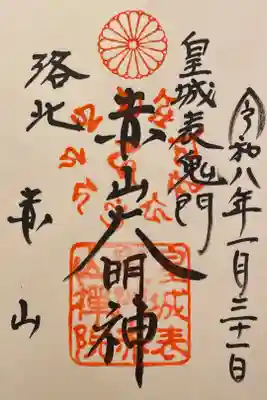 令和八年一月三十一日
皇城表鬼門
赤山大明神
洛北
赤山
皇城表
禅院